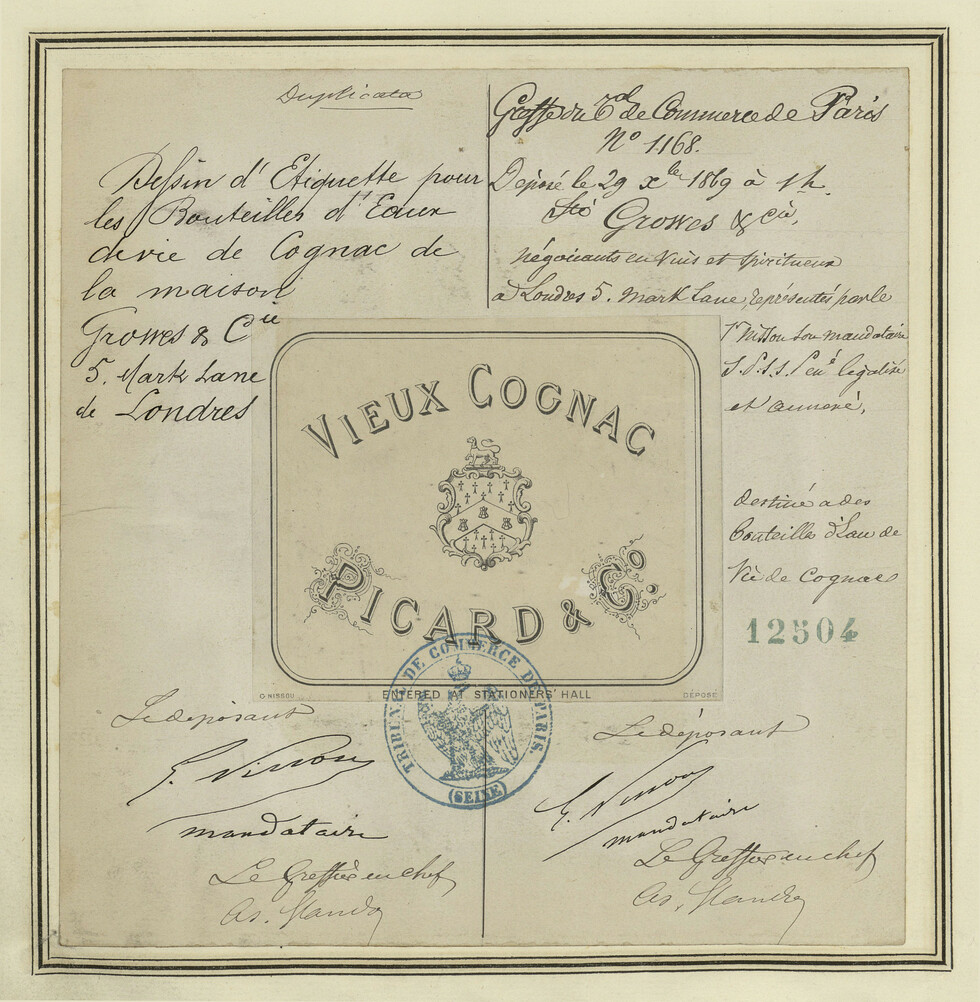 Duplicata
Dessin d'Etiquette pour
les Bouteilles d'Eaux
devie de Cognac de
la maison
Growes & Cie
5. Mark Lane
de Londres
Greffe du Tal de Commerce de Paris
No 1168.
Déposé le 29 Xbre 1869 à 1h.
Sté Growes & Cie,
négociants en Vins et spiritueux
à Londres 5. Mark Lane, représentés par le
Sr Nissou son mandataire
S.P.S.S. legalisé
et annexé,
destiné à des
bouteilles d'Eau de
Vie de Cognac
12504
VIEUX COGNAC
PICARD & Co.
G NISSOU
ENTERED AT STATIONERS' HALL
DÉPOSÉ
TRIBUNAL DE COMMERCE DE PARIS.
(SEINE)
Le déposant
G. Nissou
mandataire
Le Greffier en chef
Le déposant
G. Nissou
mandataire
Le Greffier en chef